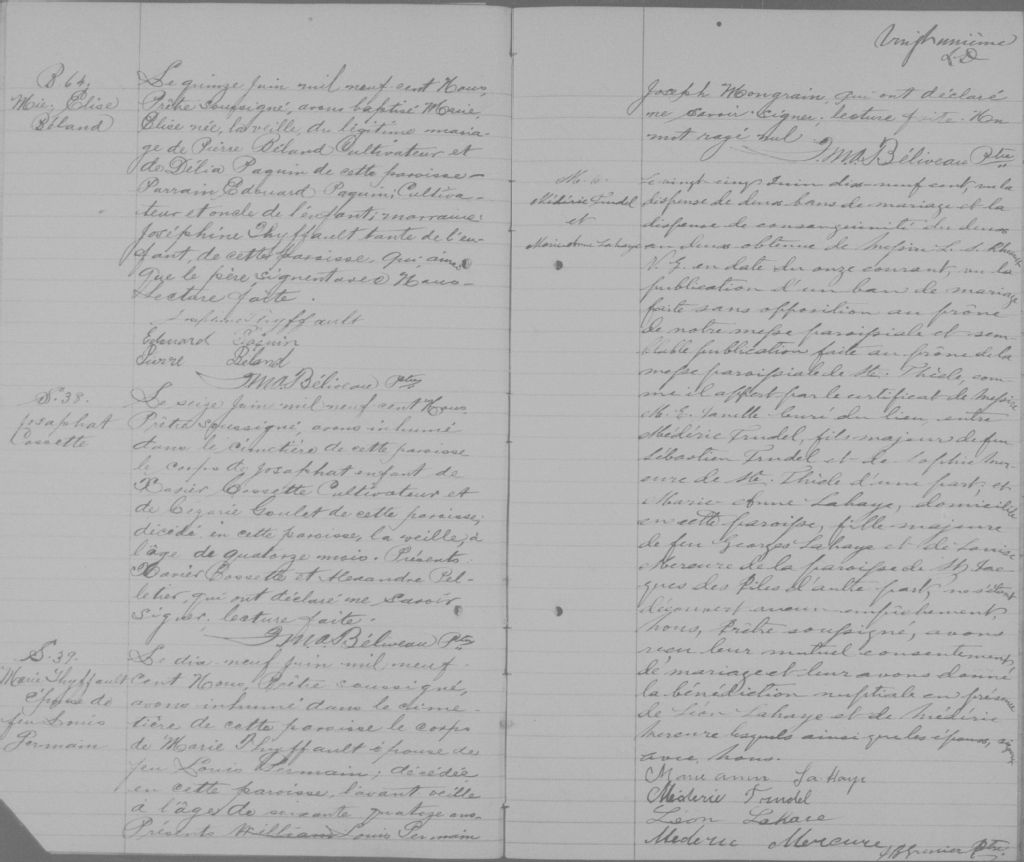 B 64.
Mie. Elise
Béland
Le quinze juin mil neuf cent Nous,
Prêtre soussigné, avons baptisé Marie,
Elise née, la veille, du légitime maria-
ge de Pierre Béland Cultivateur et
de Délia Paquin de cette paroisse -
Parrain Edouard Paquin; Cultiva-
teur et oncle de l'enfant; marraine:
Joséphine Thyffault tante de l'en-
fant, de cette paroisse, qui ainsi
que le père, signent avec Nous -
Lecture faite.
Josephine Thyffault
Edouard Paquin
Pierre Béland
J M A. Béliveau Ptre
S. 38.
Josaphat
Cossette
Le seize juin mil neuf cent Nous
Prêtre soussigné, avons inhumé
dans le cimetière de cette paroisse
le corps de Josaphat enfant de
Xavier Cossette Cultivateur et
de Cézarie Goulet de cette paroisse,
décédé en cette paroisse, la veille, à
l'âge de quatorze mois. Présents:
Xavier Cossette et Alexandre Pel-
letier, qui ont déclaré ne savoir
signer, lecture faite.
J M A. Béliveau Ptre
S. 39.
Marie Thyffault
épouse de
feu Louis
Germain
Le dix-neuf juin mil neuf
cent Nous, Prêtre soussigné,
avons inhumé dans le cime-
tière de cette paroisse le corps
de Marie Thyffault épouse de
feu Louis Germain; décédée
en cette paroisse, l'avant veille
à l'âge de soixante quatorze ans
Présents William Louis Germain
Vingt-unième
L. D
Joseph Mongrain, qui ont déclaré
ne savoir signer; lecture faite. Un
mot rayé nul
J M A. Béliveau Ptre
M.
Médéric Trudel
et
Marie Anne Lahaye
Le vingt-cinq Juin dix-neuf cent, vu la
dispense de deux bans de mariage et la
dispense de consanguinité du deux
au deux obtenue de Messire L. S.
V. G. en date du onze courant, vu la
publication d'un ban de mariage
faite sans opposition au prône
de notre messe paroissiale et sem-
blable publication faite au prône de la
messe paroissiale de Ste. Thècle, com-
me il appert par le certificat de Messire
M. E. Curé du lieu, entre
Médéric Trudel, fils majeur de feu
Sébastien Trudel et de Sophie Mer-
cure de Ste. Thècle d'une part; et
Marie-Anne Lahaye, domiciliée
en cette paroisse, fille majeure
de feu Georges Lahaye et de Louise
Mercure de la paroisse de St Jac-
ques des Piles d'autre part; ne s'étant
découvert aucun empêchement,
nous, Prêtre soussigné, avons
reçu leur mutuel consentement
de mariage et leur avons donné
la bénédiction nuptiale en présence
de Léon Lahaye et de Médéric
Mercure lesquels ainsi que les époux, signent
avec nous.
Marie anne LaHaye
Méderic Trudel
Léon Lahaie
Mederic Mercure
J B Grenier Ptre.